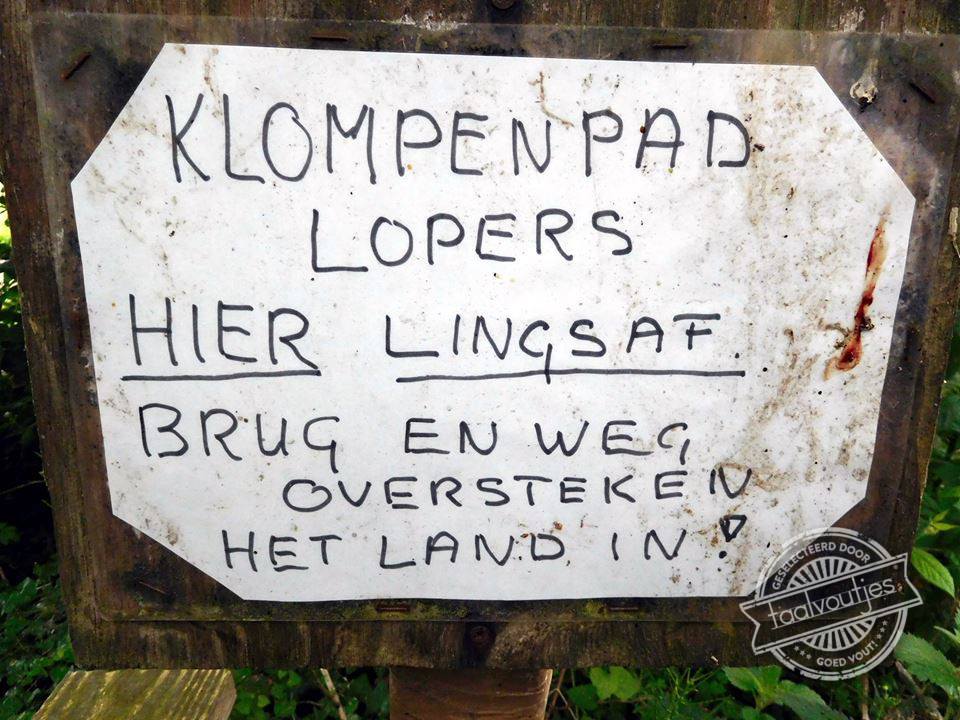 KLOMPENPAD
LOPERS
HIER LINGSAF.
BRUG EN WEG
OVERSTEKEN
HET LAND IN!
GESELECTEERD DOOR
taalvoutjes
GOED VOUT!